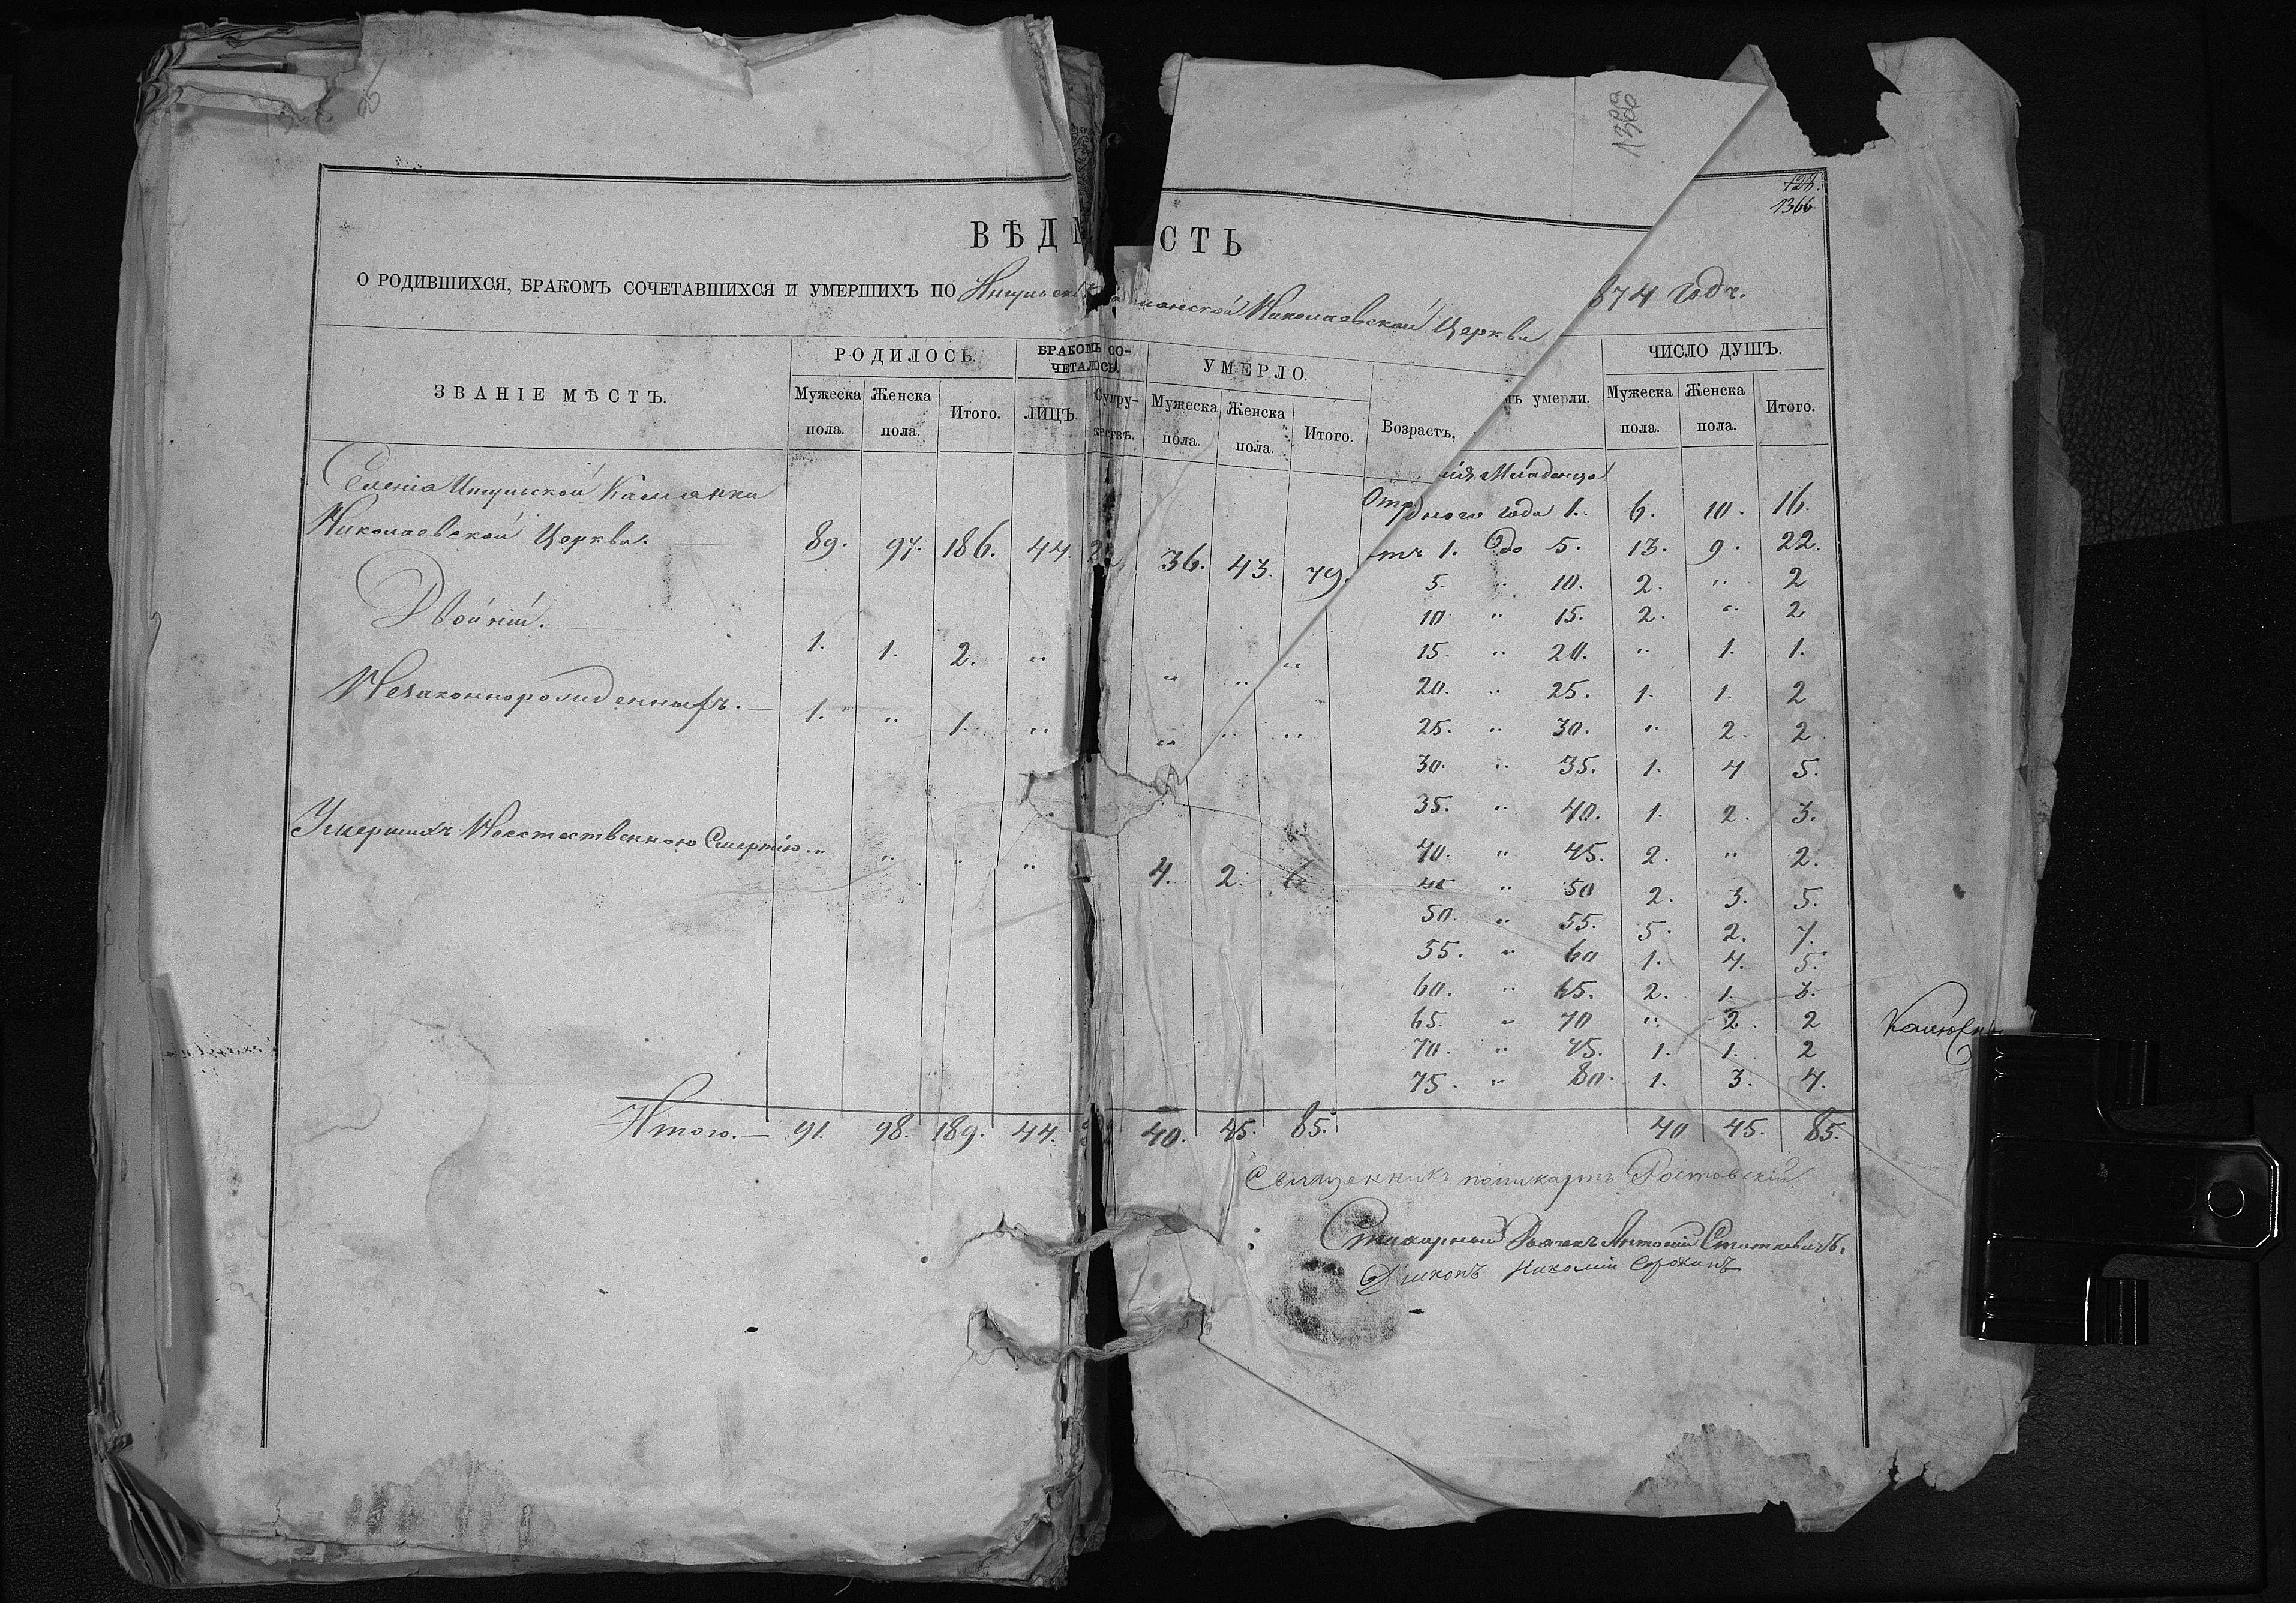 1366
128.
1366
ВѢД СТЬ
О РОДИВШИХСЯ, БРАКОМЪ СОЧЕТАВШИХСЯ И УМЕРШИХЪ ПО Николаевской Церкви 874 годъ.
ЗВАНІЕ МѢСТЪ. РОДИЛОСЬ. БРАКОМЪ СО-ЧЕТАЛОСЬ. УМЕРЛО. Возрастъ, умерли. ЧИСЛО ДУШЪ.
Мужеска пола. Женска пола. Итого. ЛИЦЪ. Супру-жествъ. Мужеска пола. Женска пола. Итого. Мужеска пола. Женска пола. Итого.
Младенца
Селенія Ингульской Касманки
одного года 1. 6. 10. 16.
Николаевской Церкви. 89. 97. 186. 44. 22 36. 43. 79. 1. до 5. 13. 9. 22.
5. " 10. 2. " 2
Двойни. 1. 1. 2. " " " "
10 " 15. 2. " 2
15. " 20. " 1. 1.
Незаконнорожденныхъ. — 1. " 1. " " " "
20. " 25. 1. 1. 2
25. " 30. " 2. 2
30. " 35. 1. 4 5.
35. " 40. 1. 2. 3.
Умершихъ Неестественною Смертію. " " " " 4. 2. 6
40. " 45. 2. " 2.
45 " 50 2. 3. 5.
50. " 55. 5. 2. 7.
55. " 60 1. 4. 5.
60. " 65. 2. 1. 3.
65. " 70 " 2. 2
70. " 75. 1. 1. 2
75. " 80. 1. 3. 4.
Итого. — 91. 98. 189. 44. 22 40. 45. 85. 40 45. 85.
Священникъ поликарпъ Ростовскій
Стихарный Дьячекъ Антоній Статкевичъ.
Николай Сорокинъ